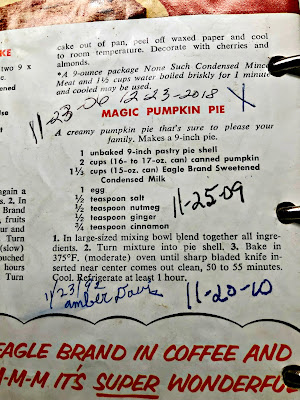 cake out of pan, peel off waxed paper and cool
to room temperature. Decorate with cherries and
almonds.
*A 9-ounce package None Such Condensed Mince
Meat and 1½ cups water boiled briskly for 1 minute
and cooled may be used.
11-23-06 12-23-2018 X
MAGIC PUMPKIN PIE
A creamy pumpkin pie that's sure to please your
family. Makes a 9-inch pie.
1 unbaked 9-inch pastry pie shell
2 cups (16- to 17-oz. can) canned pumpkin
1⅓ cups (15-oz. can) Eagle Brand Sweetened
Condensed Milk
1 egg
½ teaspoon salt
½ teaspoon nutmeg
½ teaspoon ginger
¾ teaspoon cinnamon
11-25-09
1. In large-sized mixing bowl blend together all ingre-
dients. 2. Turn mixture into pie shell. 3. Bake in
375°F. (moderate) oven until sharp bladed knife in-
serted near center comes out clean, 50 to 55 minutes.
Cool. Refrigerate at least 1 hour.
11/23/92
amber Dawn
11-20-10
EAGLE BRAND IN COFFEE AND
M-M-M IT'S SUPER WONDERFUL
KE
two 9 x
ened
lso
ngain a
s. 2. In
Brand
fruits
ur and
Turn
(slow)
ouched
hours
Turn